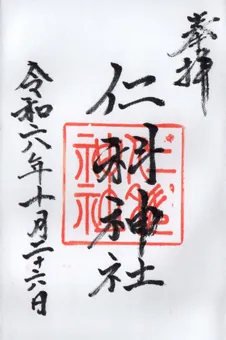 奉拝
仁科神社
仁科神社
令和六年十月二十六日